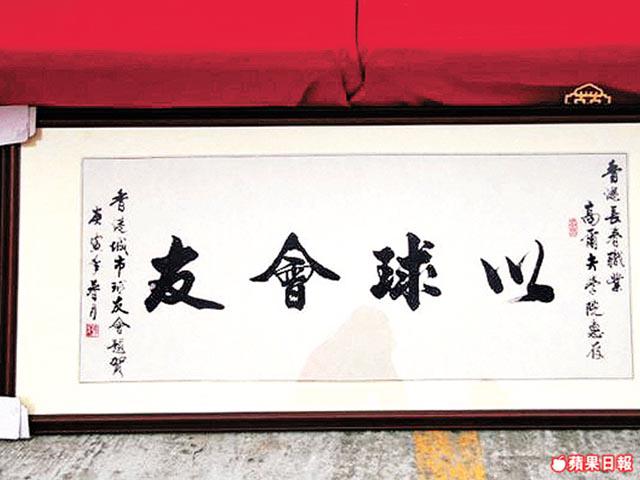 香港長春職業
高爾夫學院惠存
以球會友
香港城市球友會題賀
庚寅年春月
蘋果日報